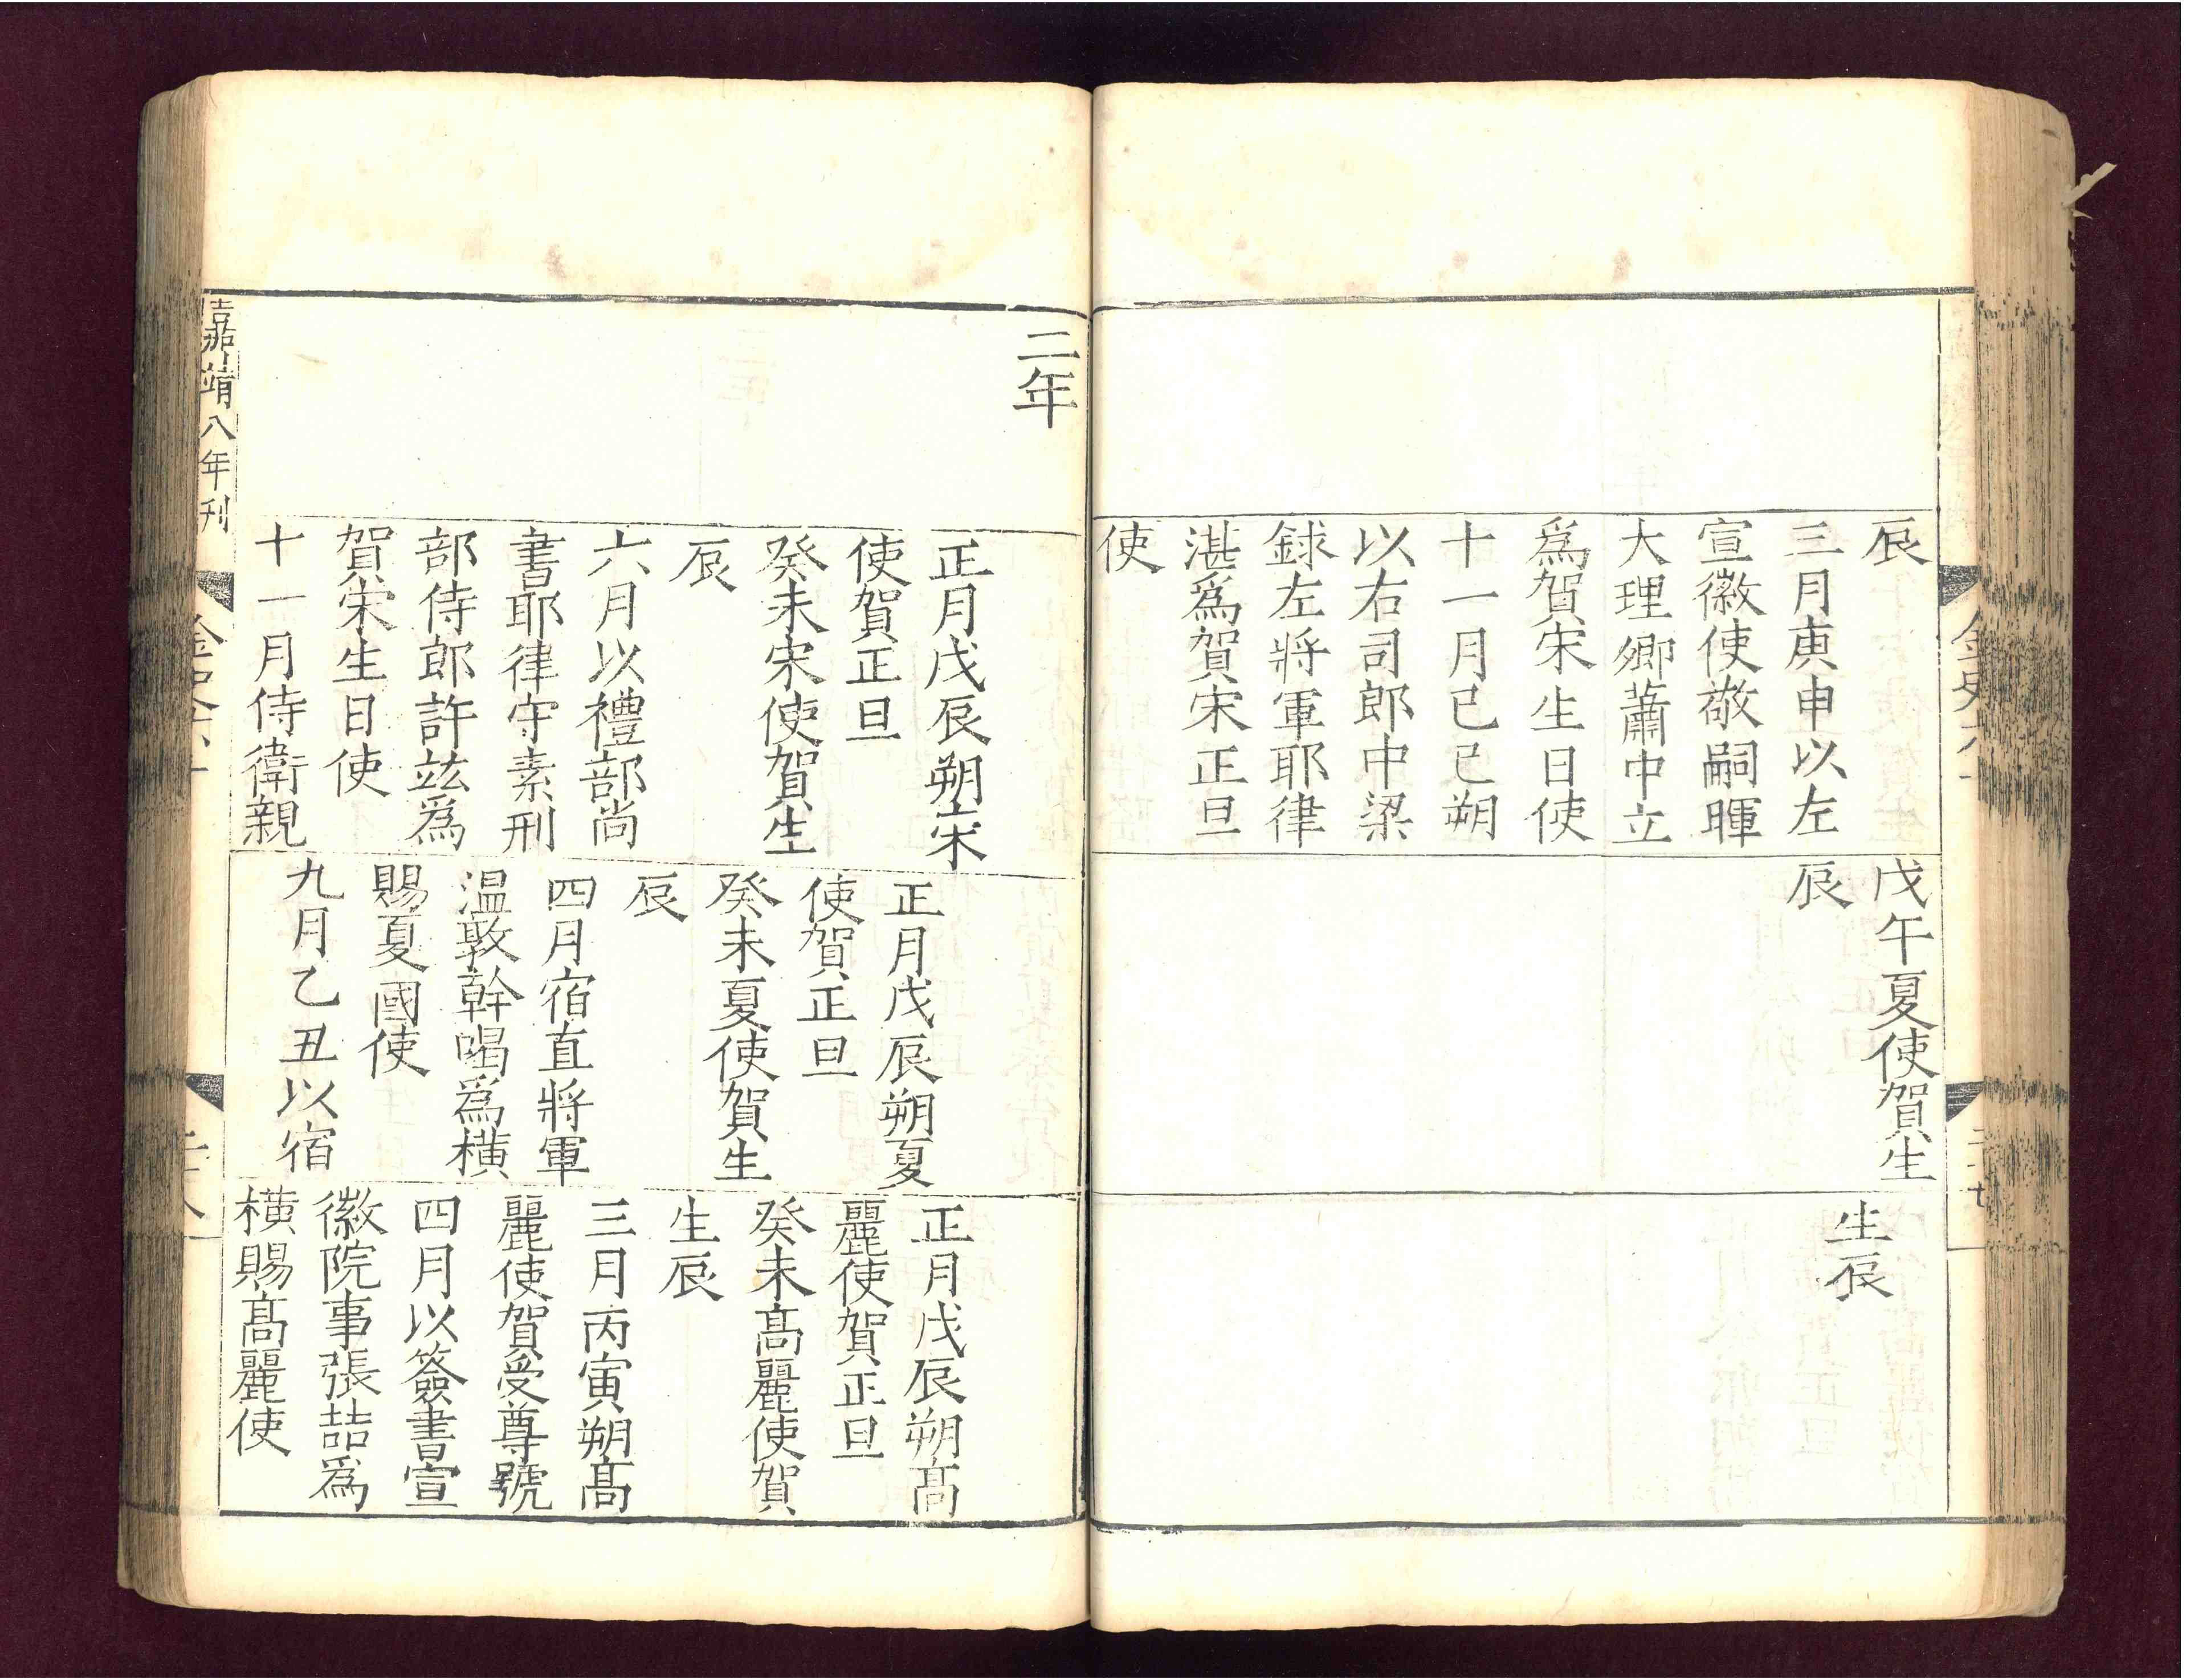 辰
三月庚申以左
宣徽使敬嗣暉
大理卿蕭中立
爲賀宋生日使
十一月己巳朔
以右司郎中梁
銶左將軍耶律
湛爲賀宋正旦
使
戊午夏使賀生
辰
生辰
二年
正月戊辰朔宋
使賀正旦
癸未宋使賀生
辰
六月以禮部尚
書耶律守素刑
部侍郎許竑爲
賀宋生日使
十一月侍衛親
正月戊辰朔夏
使賀正旦
癸未夏使賀生
辰
四月宿直將軍
温敦幹喝爲橫
賜夏國使
九月乙丑以宿
正月戊辰朔髙
麗使賀正旦
癸未髙麗使賀
生辰
三月丙寅朔髙
麗使賀受尊號
四月以簽書宣
徽院事張喆爲
橫賜髙麗使
嘉靖八年刊